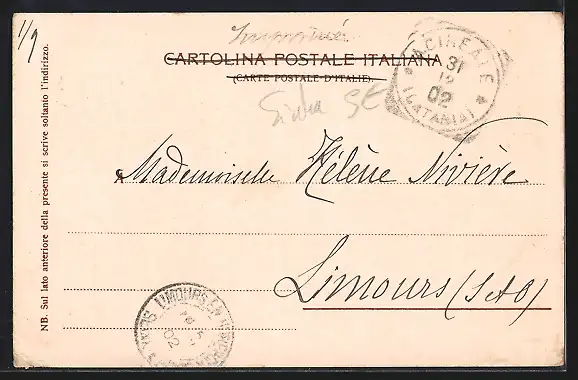 1/9
Imprimé
CARTOLINA POSTALE ITALIANA
(CARTE POSTALE D'ITALIE).
ACIREALE
31
12
02
(CATANIA)
Mademoiselle Hélène Nivière
Limours (S&O)
LIMOURS-EN
02
NB. Sul lato anteriore della presente si scrive soltanto l'indirizzo.